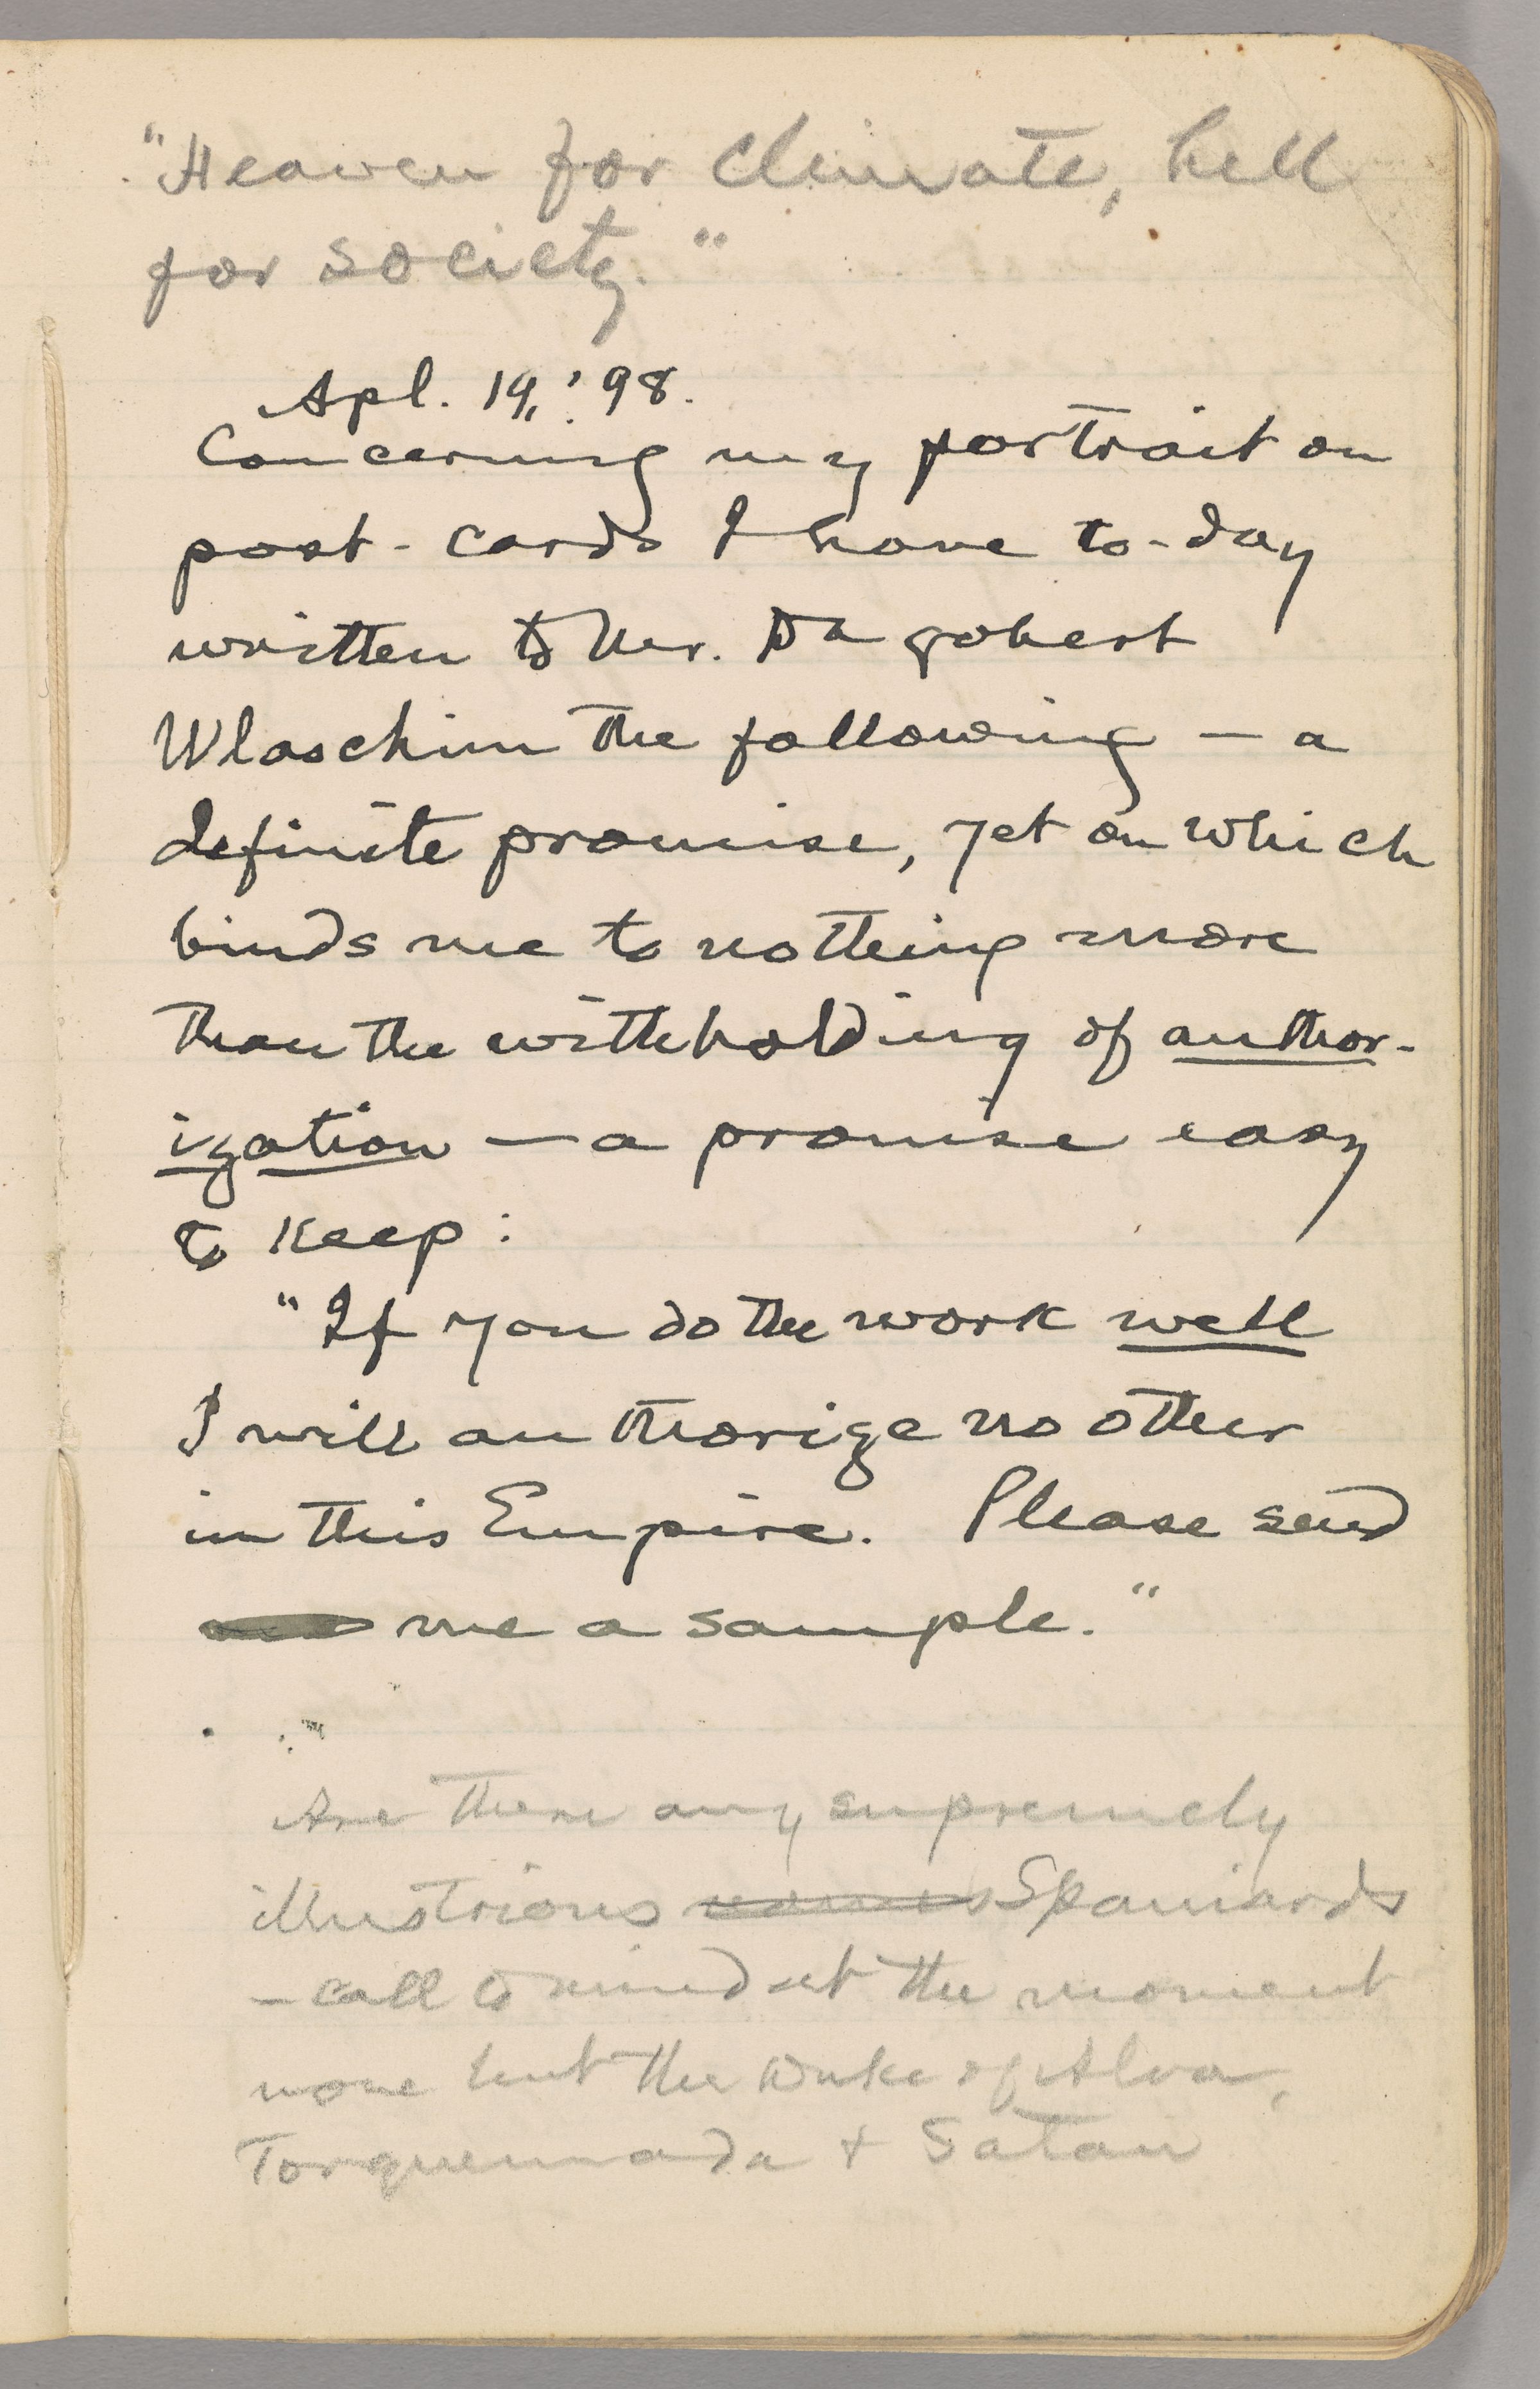 "Heaven for climate, hell
for society."
Apl. 19, '98.
Concerning my portrait on
post-cards I have to-day
written to Mr. Dagobert
Wlaschim the following — a
definite promise, yet on which
binds me to nothing more
than the withholding of author-
ization — a promise easy
to keep:
"If you do the work well
I will authorize no other
in this Empire. Please send
me a sample."
Are there any supremely
illustrious names Spaniards
— call to mind at the moment
none but the Duke of Alva,
Torquemada + Satan